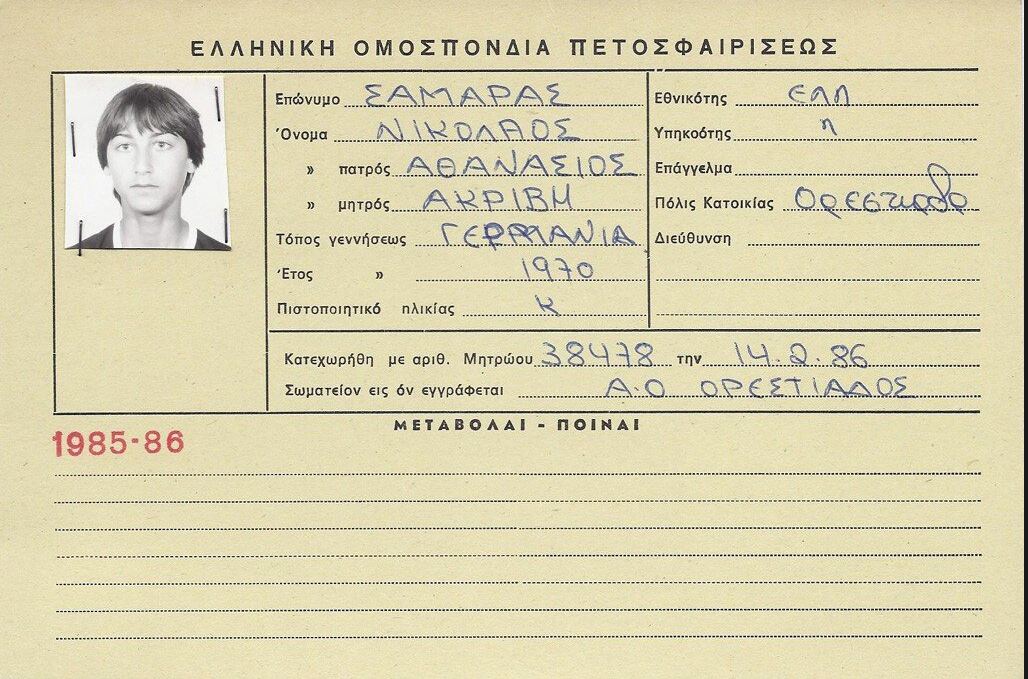 ΕΛΛΗΝΙΚΗ ΟΜΟΣΠΟΝΔΙΑ ΠΕΤΟΣΦΑΙΡΙΣΕΩΣ
Επώνυμο ΣΑΜΑΡΑΣ
Όνομα ΝΙΚΟΛΑΟΣ
» πατρός ΑΘΑΝΑΣΙΟΣ
» μητρός ΑΚΡΙΒΗ
Τόπος γεννήσεως ΓΕΡΜΑΝΙΑ
Έτος » 1970
Πιστοποιητικό ηλικίας Κ
Εθνικότης ΕΛΛ
Υπηκοότης η
Επάγγελμα
Πόλις Κατοικίας
Διεύθυνση
Κατεχωρήθη με αριθ. Μητρώου 38478 την 14.2.86
Σωματείον εις όν εγγράφεται Α.Ο ΟΡΕΣΤΙΑΔΟΣ
ΜΕΤΑΒΟΛΑΙ - ΠΟΙΝΑΙ
1985-86